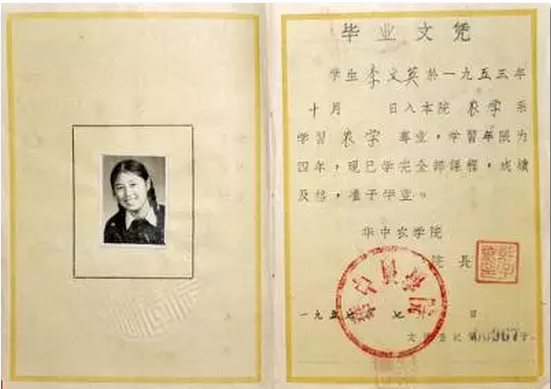 毕业文凭
学生李文英於一九五三年
十月 日入本院农学系
学習农学專业，学習年限为
四年，现已学完全部课程，成績
及格，准予毕业。
华中农学院
院長
一九五七年七 日
文凭登记第 967号